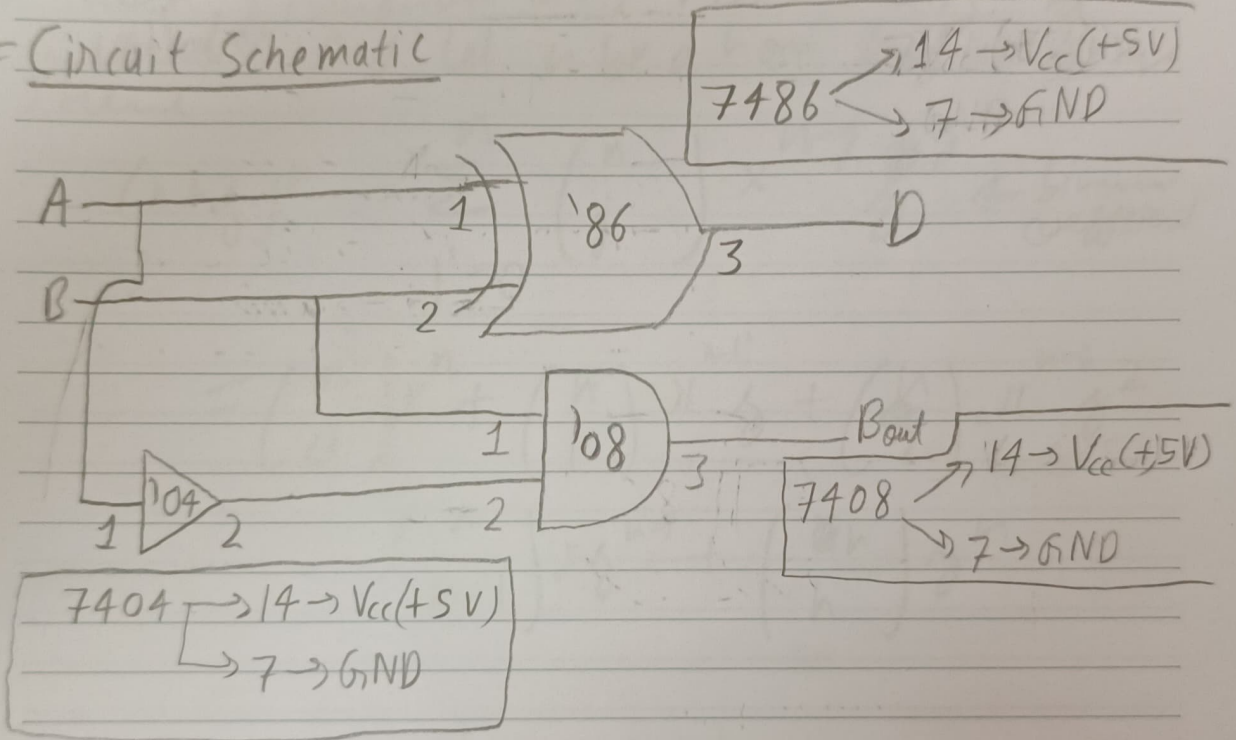 Circuit Schematic
7486 → 14 → Vcc (+5V)
→ 7 → GND
A
1
'86
3
D
B
2
1
'08
3
Bout
2
7408 → 14 → Vcc (+5V)
→ 7 → GND
1
'04
2
7404 → 14 → Vcc (+5V)
→ 7 → GND